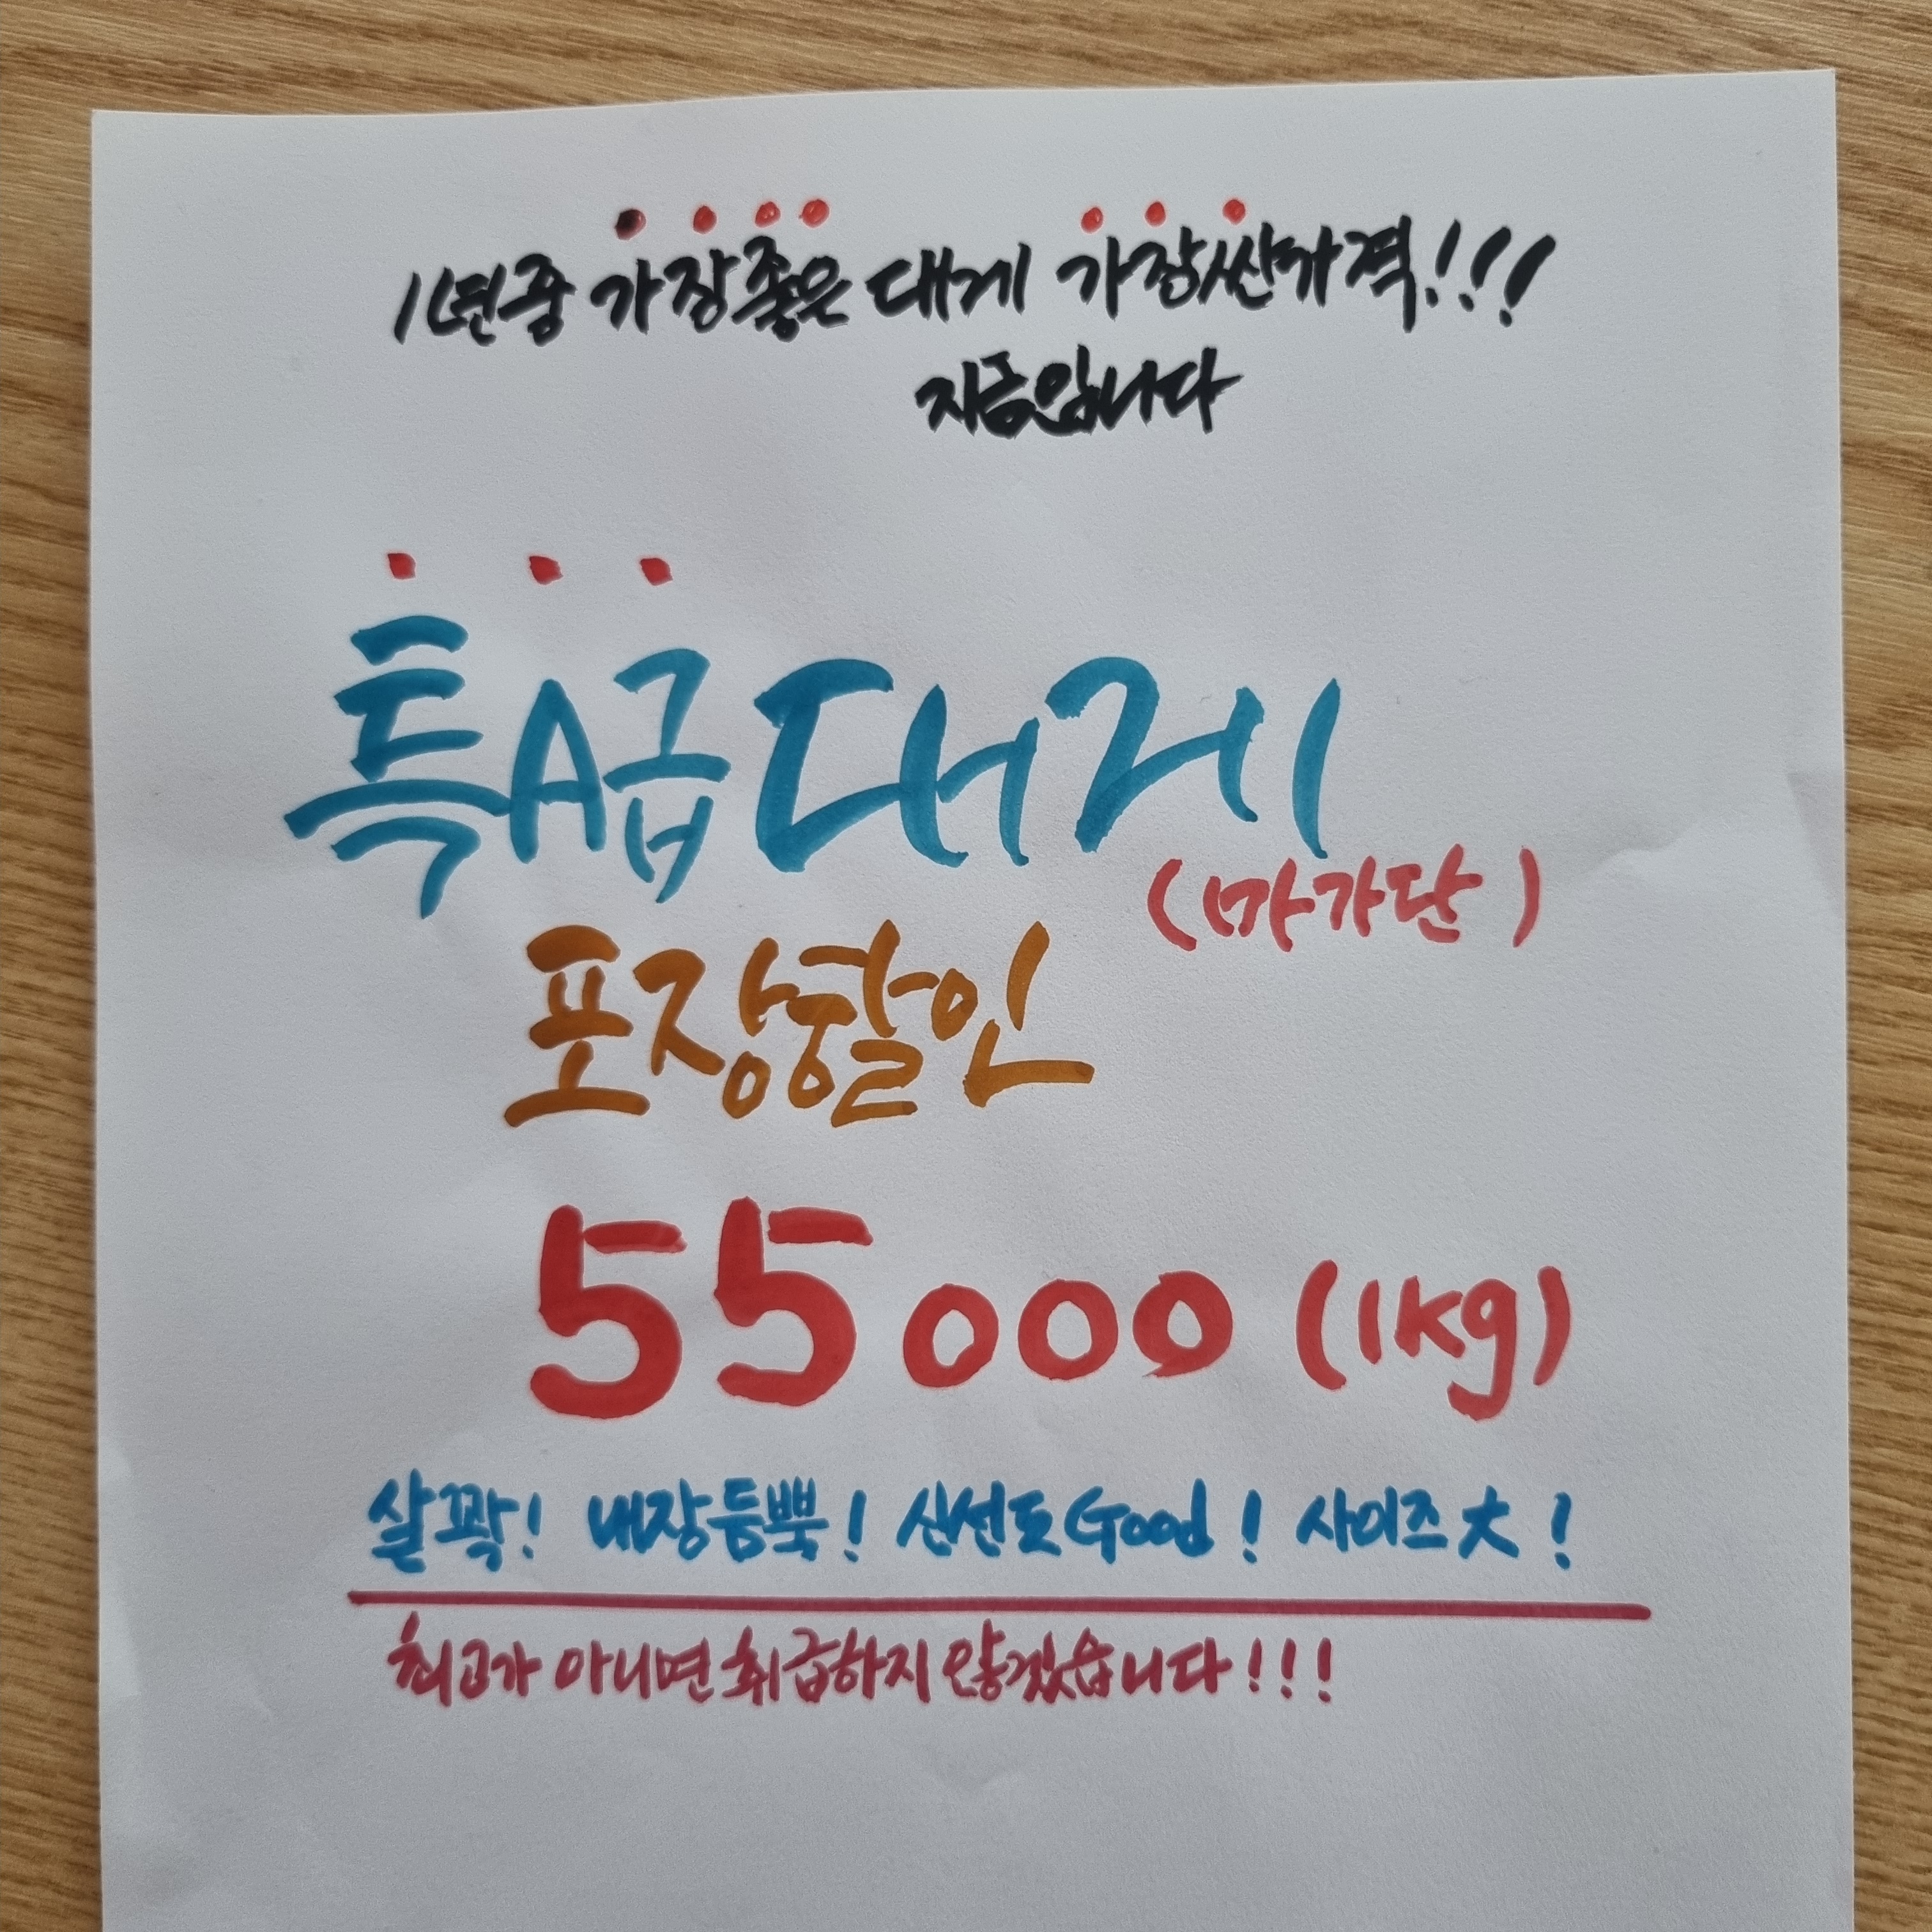 1년중 가장좋은 대게 가장싼가격!!!
지금입니다
특A급대게
(마가단)
포장할인
55000 (1kg)
살꽉! 내장듬뿍! 신선도Good! 사이즈大!
최고가 아니면 취급하지 않겠습니다!!!